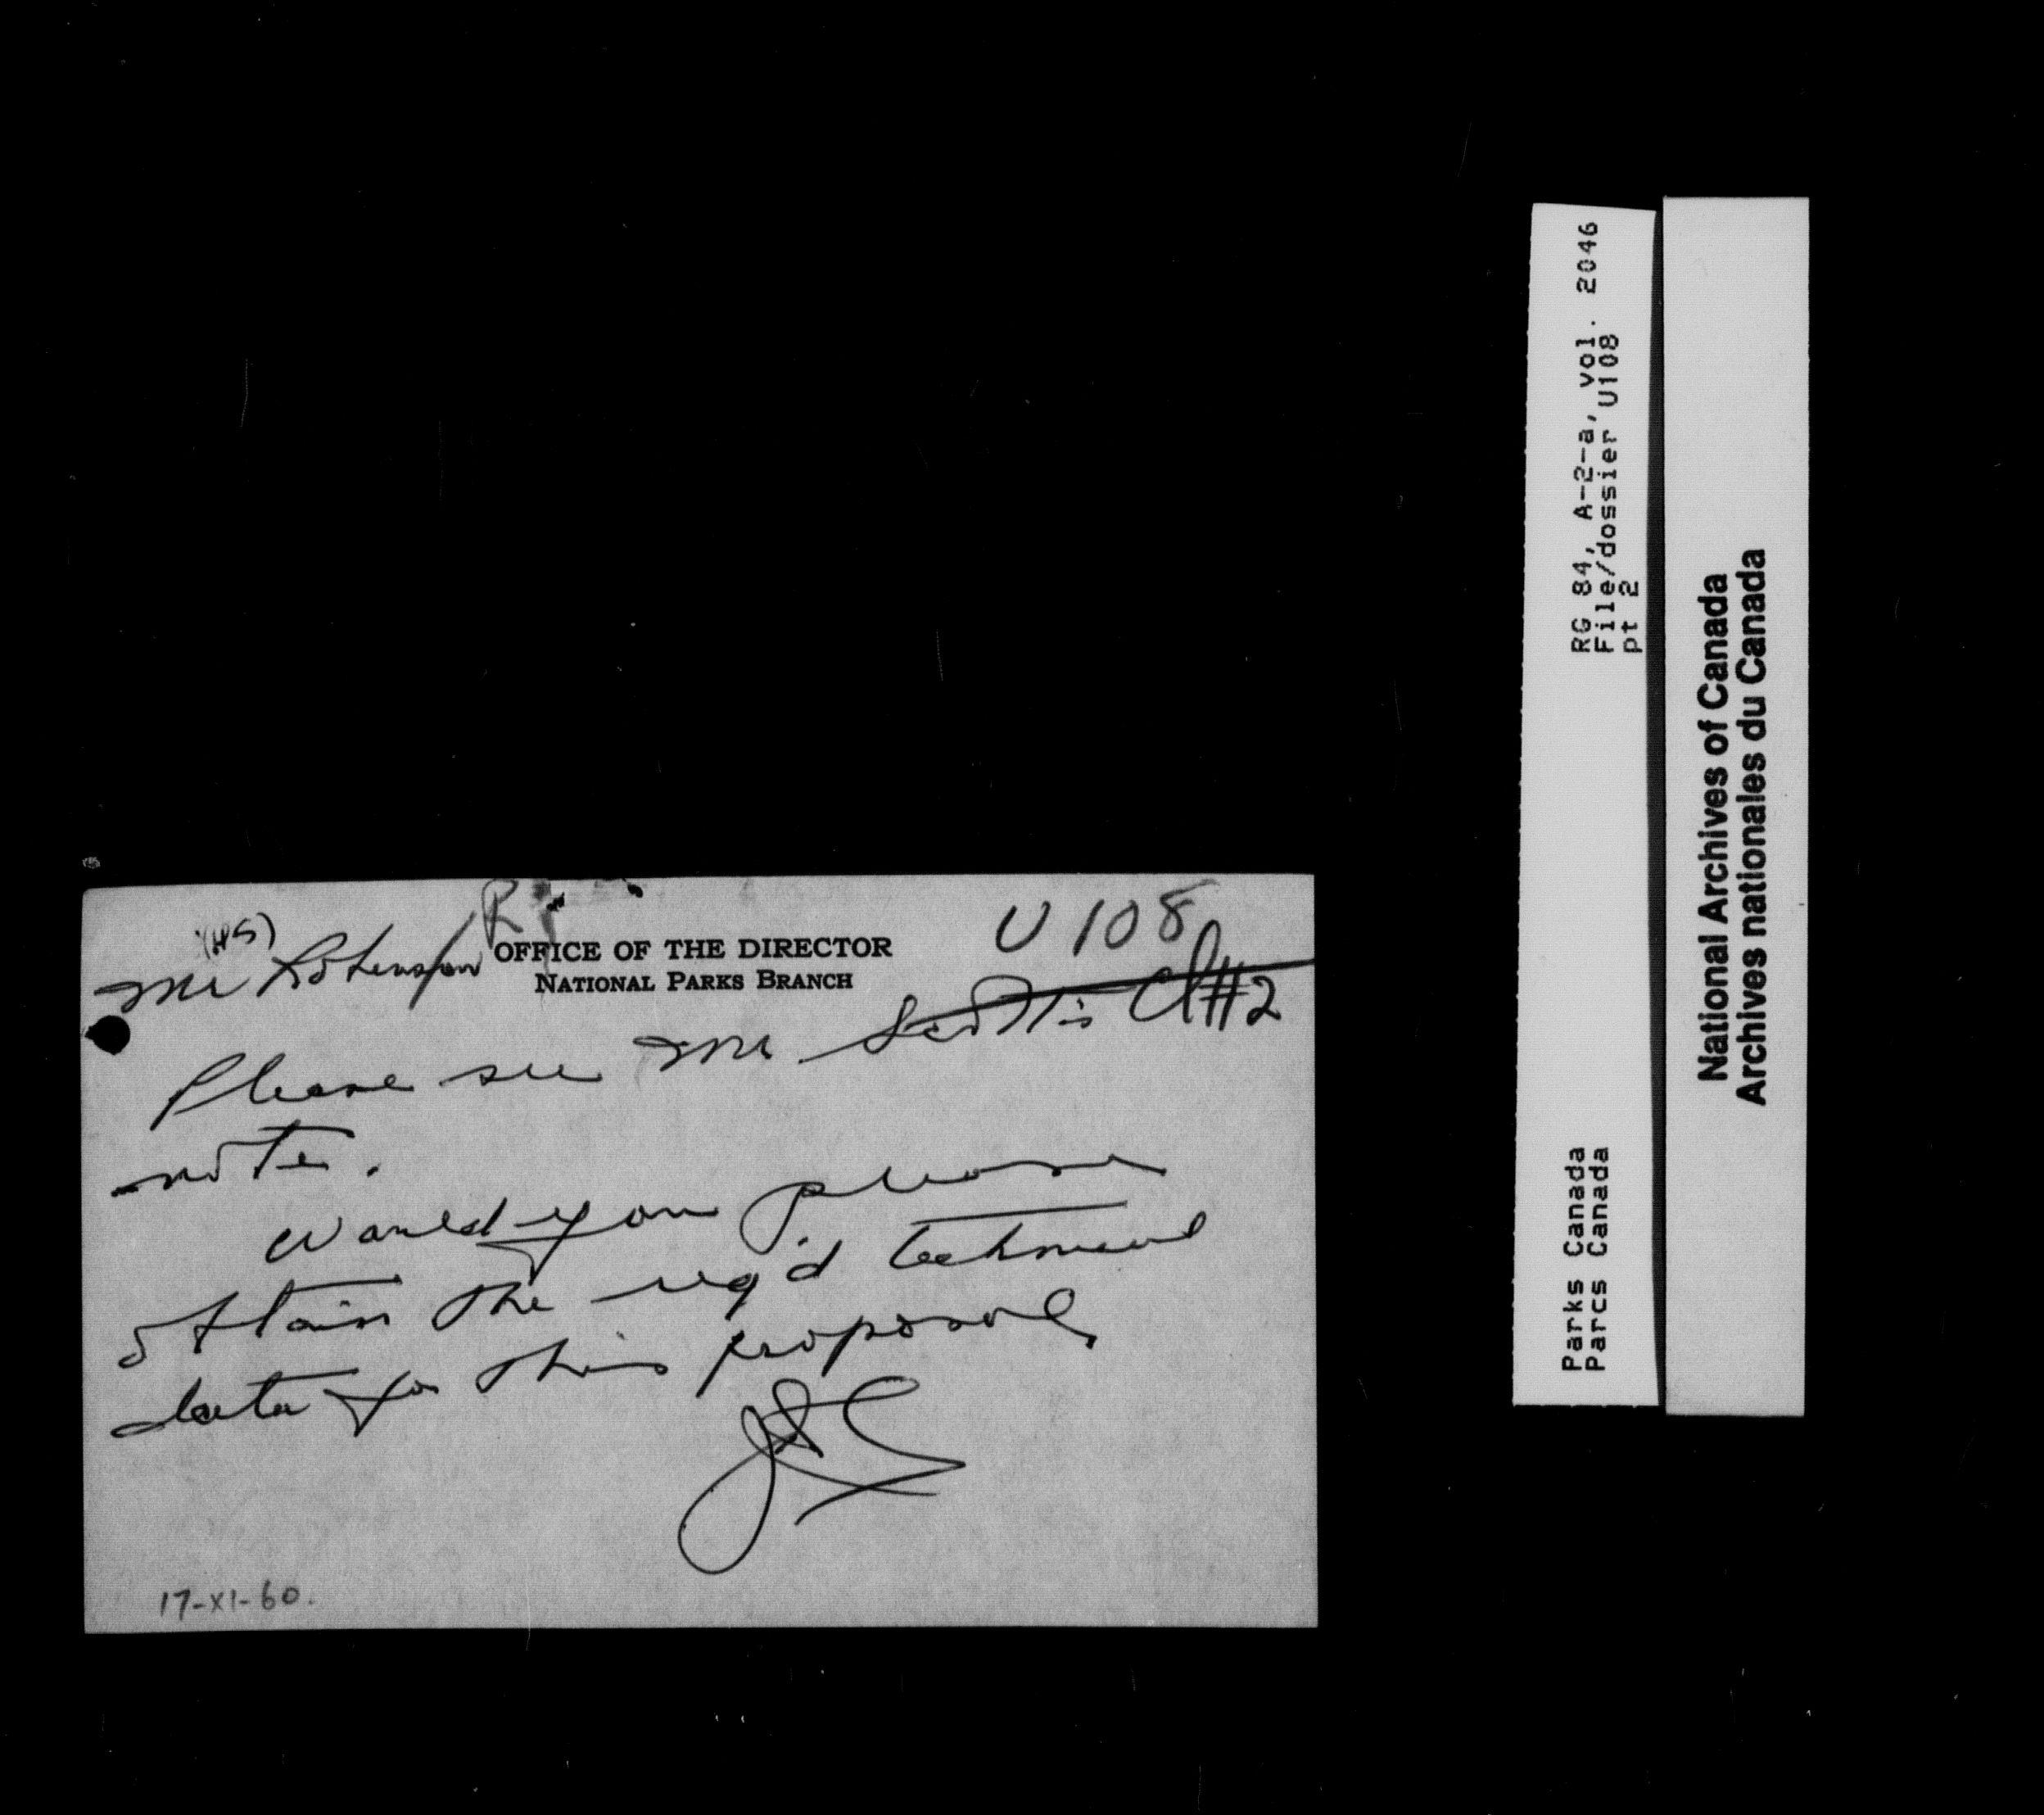 U 108
(HS)
Mr Robinson
OFFICE OF THE DIRECTOR
NATIONAL PARKS BRANCH
#2
Please see Mr. Scott's
note.
Would you please
obtain the req'd technical
data for this proposal,
17-XI-60.
RG 84, A-2-a, vol. 2046
File/dossier U108
pt 2
Parks Canada
Parcs Canada
National Archives of Canada
Archives nationales du Canada